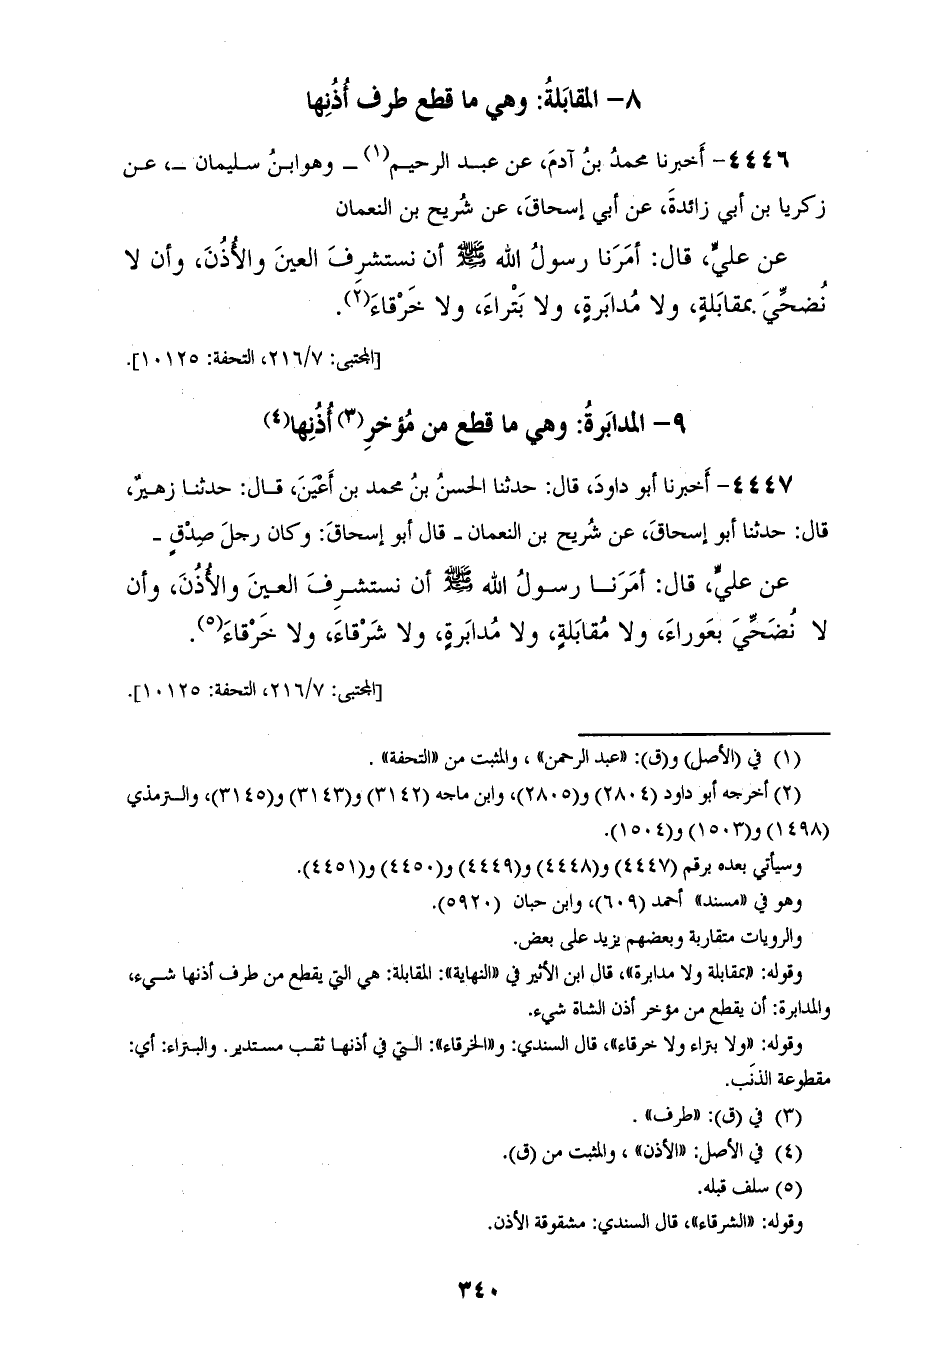 ٨- المقابَلةُ: وهي ما قطع طرف أُذُنِها
٤٤٤٦- أَخبرنا محمدُ بنُ آدمَ، عن عبد الرحيم(١) ـ وهو ابنُ سليمان ـ، عن
زكريا بن أبي زائدةَ، عن أبي إسحاقَ، عن شُريح بن النعمان
عن عليٍّ، قال: أمَرَنا رسولُ الله ﷺ أن نستشرِفَ العينَ والأُذُنَ، وأن لا
نُضحِّيَ بمقابَلةٍ، ولا مُدابَرةٍ، ولا بَتْراءَ، ولا خَرْقاءَ(٢).
[المجتبى: ٢١٦/٧، التحفة: ١٠١٢٥].
٩- المدابَرةُ: وهي ما قطع من مُؤخرِ(٣) أُذُنِها(٤)
٤٤٤٧- أَخبرنا أبو داودَ، قال: حدثنا الحسنُ بنُ محمد بن أَعْيَنَ، قال: حدثنا زهيرٌ،
قال: حدثنا أبو إسحاقَ، عن شُريح بن النعمان ـ قال أبو إسحاقَ: وكان رجلَ صِدْقٍ ـ
عن عليٍّ، قال: أمَرَنا رسولُ الله ﷺ أن نستشرِفَ العينَ والأُذُنَ، وأن
لا نُضَحِّيَ بعَوراءَ، ولا مُقابَلةٍ، ولا مُدابَرةٍ، ولا شَرْقاءَ، ولا خَرْقاءَ(٥).
[المجتبى: ٢١٦/٧، التحفة: ١٠١٢٥].
(١) في (الأصل) و(ق): «عبد الرحمن»، والمثبت من «التحفة».
(٢) أخرجه أبو داود (٢٨٠٤) و(٢٨٠٥)، وابن ماجه (٣١٤٢) و(٣١٤٣) و(٣١٤٥)، والترمذي
(١٤٩٨) و(١٥٠٣) و(١٥٠٤).
وسيأتي بعده برقم (٤٤٤٧) و(٤٤٤٨) و(٤٤٤٩) و(٤٤٥٠) و(٤٤٥١).
وهو في «مسند» أحمد (٦٠٩)، وابن حبان (٥٩٢٠).
والرويات متقاربة وبعضهم يزيد على بعض.
وقوله: «بمقابلة ولا مدابرة»، قال ابن الأثير في «النهاية»: المقابلة: هي التي يقطع من طرف أذنها شيء،
والمدابرة: أن يقطع من مؤخر أذن الشاة شيء.
وقوله: «ولا بتراء ولا خرقاء»، قال السندي: و«الخرقاء»: التي في أذنها ثقب مستدير. والبتراء: أي:
مقطوعة الذنَب.
(٣) في (ق): «طرف».
(٤) في الأصل: «الأذن»، والمثبت من (ق).
(٥) سلف قبله.
وقوله: «الشرقاء»، قال السندي: مشقوقة الأذن.
٣٤٠